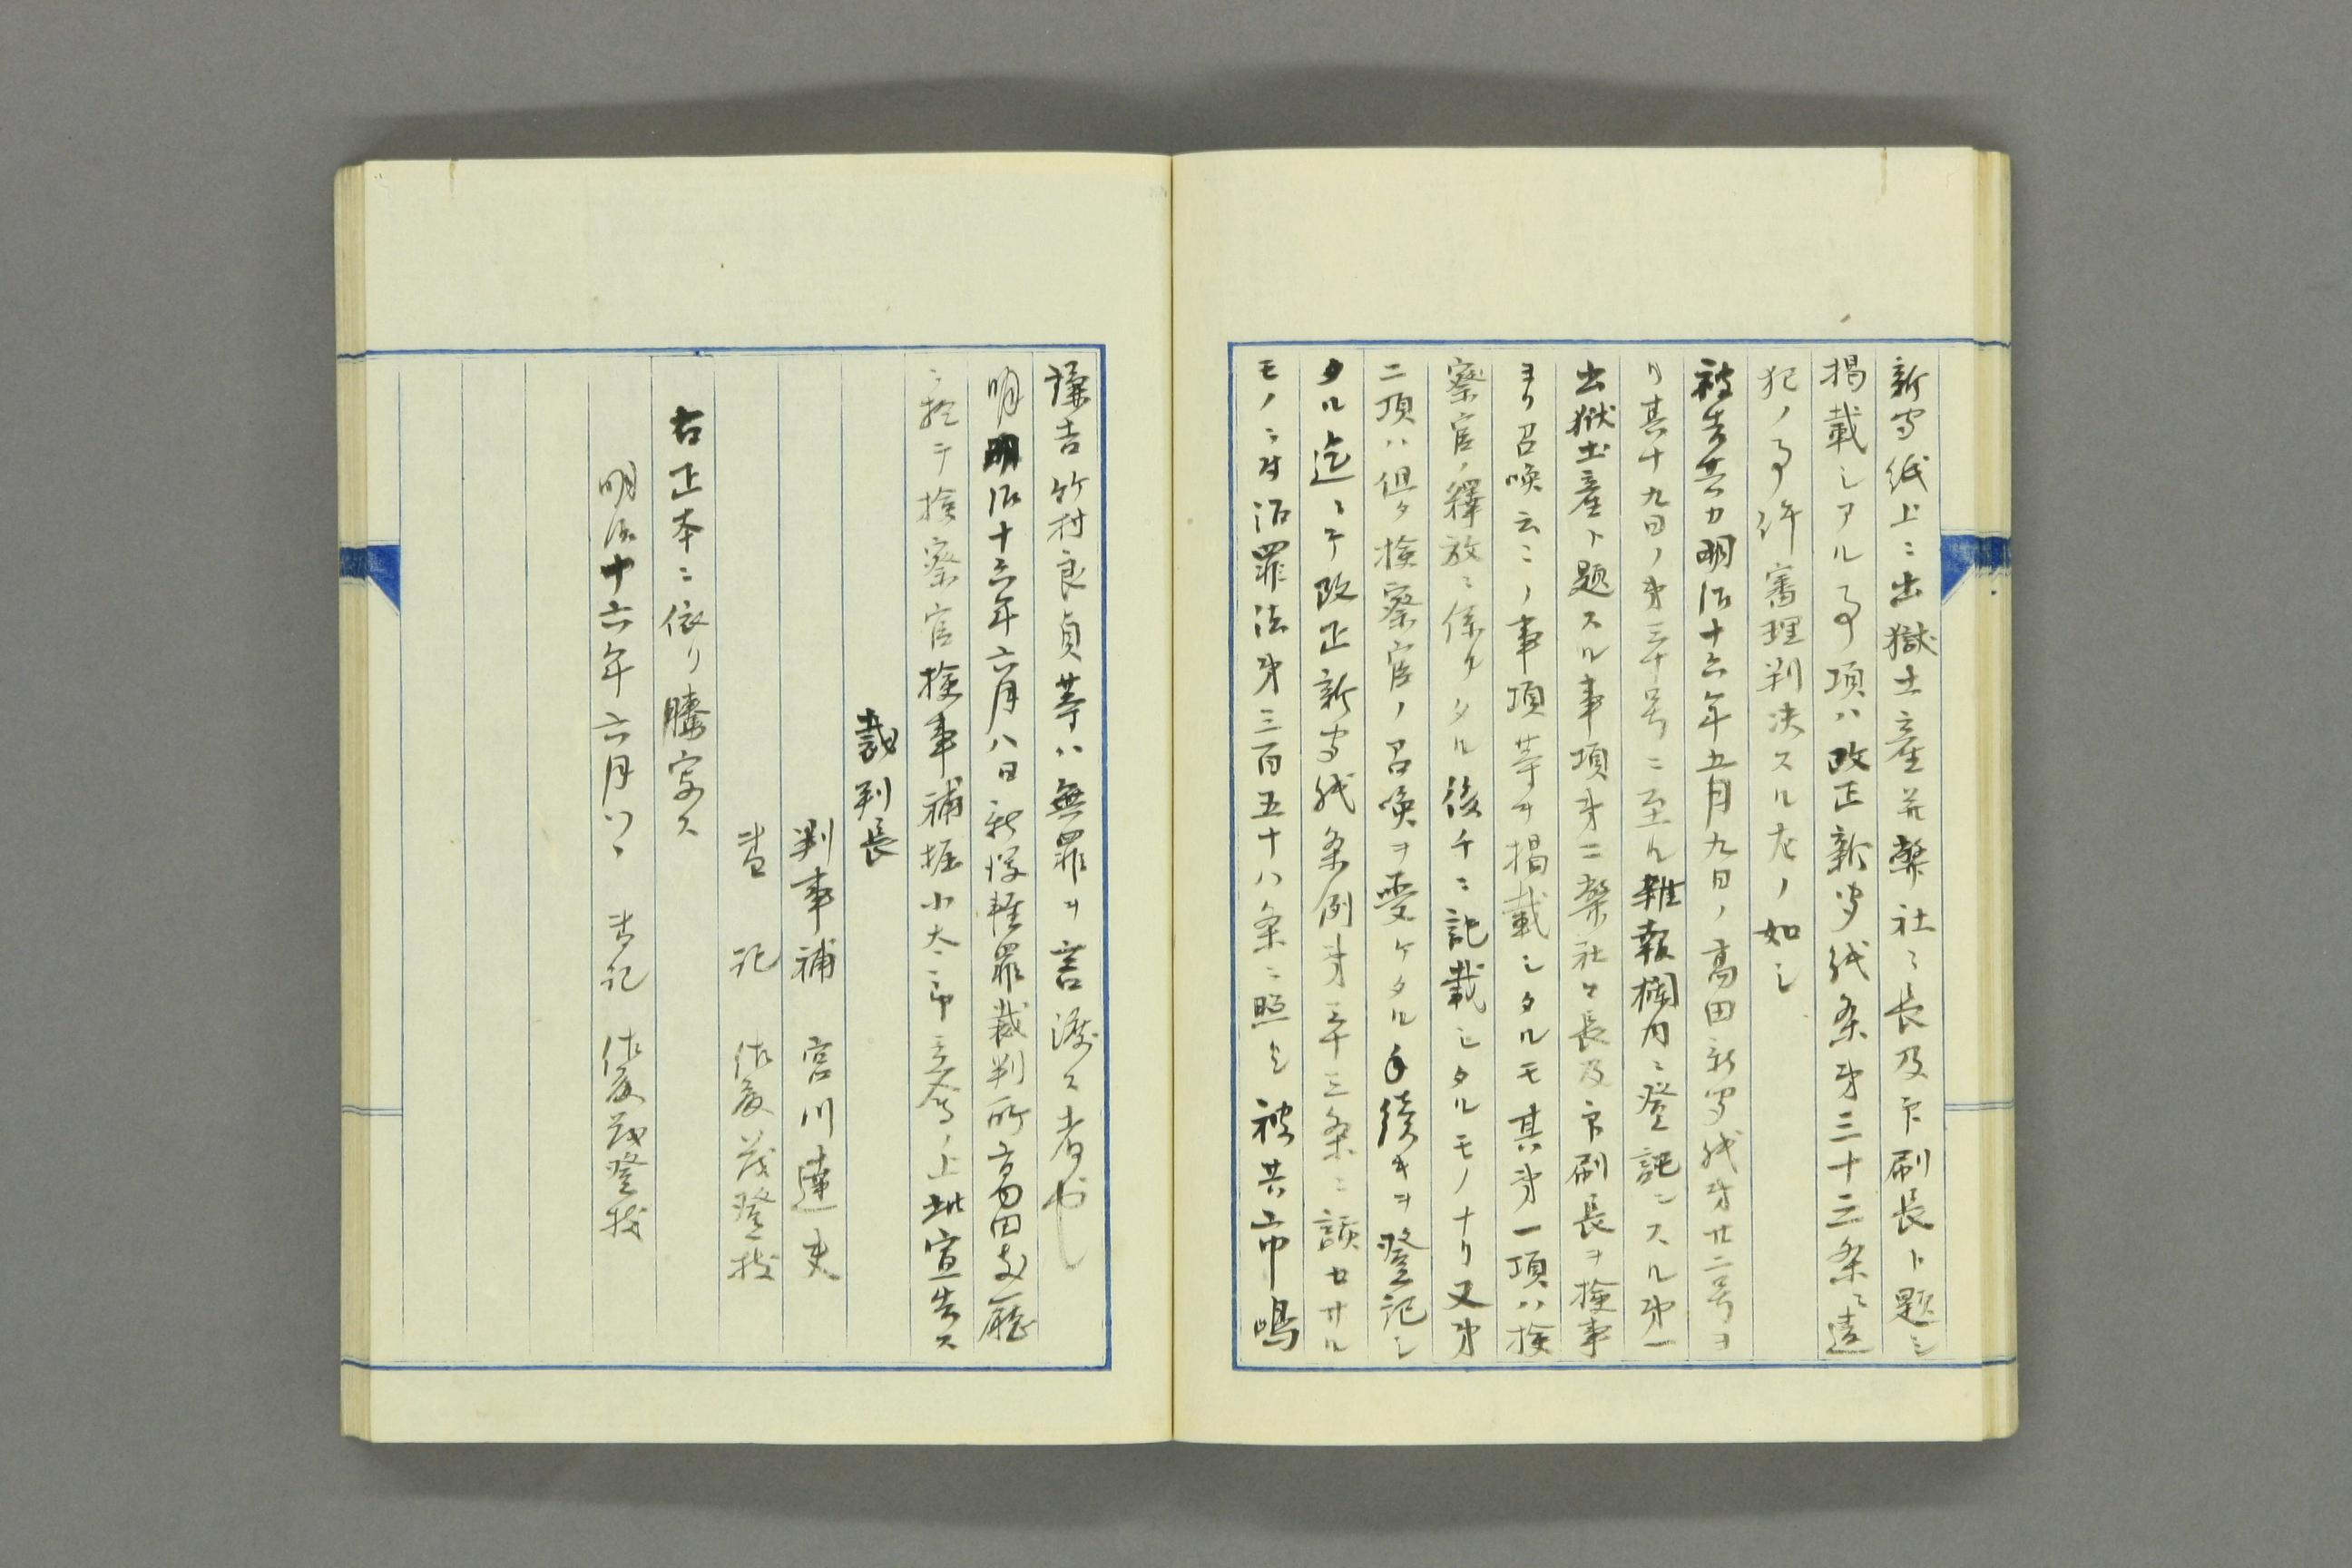 新聞紙上ニ出獄土産并弊社々長及印刷長ト題シ
掲載シアル事項ハ改正新聞紙条第三十三条ニ違
犯ノ事件審理判决スル左ノ如シ
被告共カ明治十六年五月九日ノ高田新聞紙第廿二号ヨ
リ其十九日ノ第三十号ニ至ル雑報欄内ニ登記ニスル第一
出獄土産ト題スル事項第二弊社々長及印刷長ヲ検事
ヨリ召喚云ニノ事項等ヲ掲載シタルモ其第一項ハ検
察官ノ釋放ニ係リタル後チニ記載シタルモノナリ又第
二項ハ但タ検察官ノ召喚ヲ受ケタル手續キヲ登記シ
タル迄ニテ改正新聞紙条例第三十三条ニ該セサル
モノニ付治罪法第三百五十八条ニ照シ被告市嶋
謙吉竹村良貞等ハ無罪ヲ言渡ス者也
明治十六年六月八日新潟軽罪裁判所高田支廳
ニ於テ検察官検事補堀小太郎立會ノ上此宣告ス
裁判長
判事補 宮川達夫
書記 佐藤茂登枝
右正本ニ依リ謄寫ス
明治十六年六月 書記 佐藤茂登枝